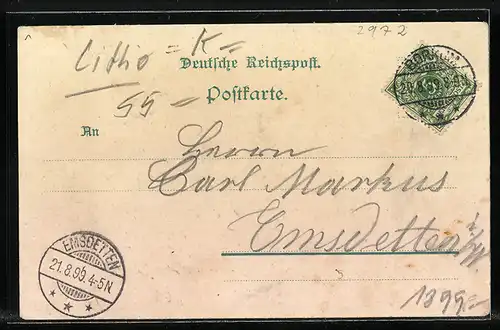 2972
Litho = K =
Deutsche Reichspost.
BORKUM
55 =
Postkarte.
An
Herrn
Carl Markus
Emsdetten
EMSDETTEN
21.8.96.4-5N
1899